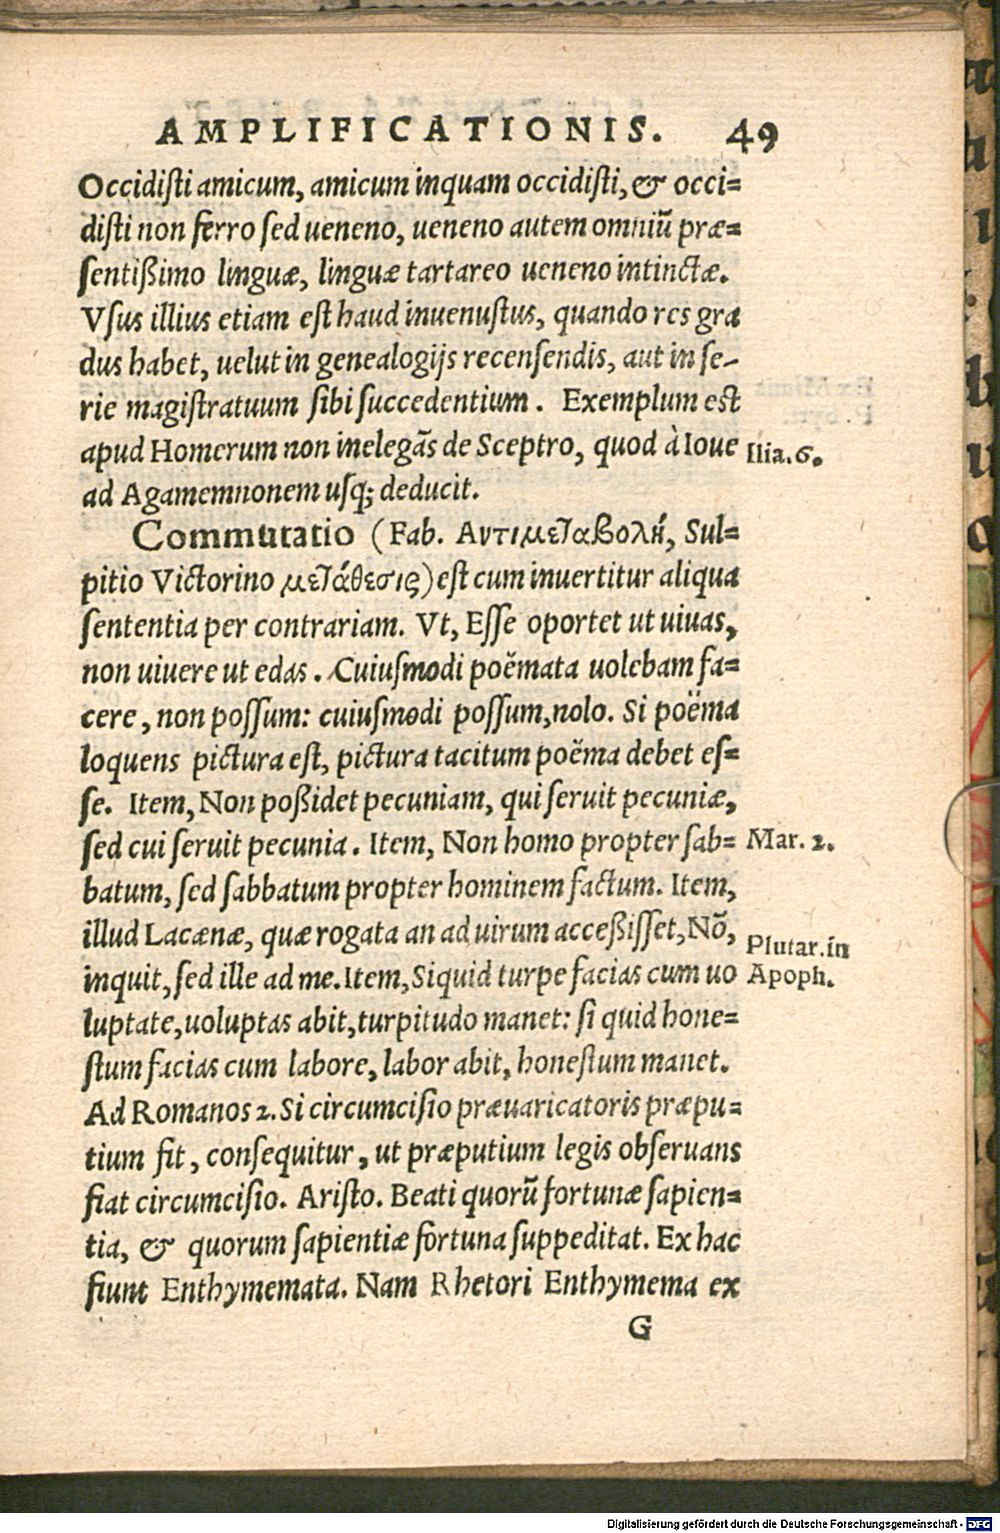 AMPLIFICATIONIS. 49
Occidiſti amicum, amicum inquam occidiſti, & occi=
diſti non ferro ſed ueneno, ueneno autem omniū præ=
ſentißimo linguæ, linguæ tartareo ueneno intinctæ.
Vſus illius etiam eſt haud inuenuſtus, quando res gra
dus habet, uelut in genealogijs recenſendis, aut in ſe-
rie magiſtratuum ſibi ſuccedentium. Exemplum eſt
apud Homerum non inelegās de Sceptro, quod à Ioue
Ilia.6.
ad Agamemnonem uſq; deducit.
Commutatio (Fab. Αντιμεταβολή, Sul=
pitio Victorino μετάθεσις) eſt cum inuertitur aliqua
ſententia per contrariam. Vt, Eſſe oportet ut uiuas,
non uiuere ut edas. Cuiuſmodi poëmata uolebam fa=
cere, non poſſum: cuiuſmodi poſſum, nolo. Si poëma
loquens pictura eſt, pictura tacitum poëma debet eſ=
ſe. Item, Non poßidet pecuniam, qui ſeruit pecuniæ,
ſed cui ſeruit pecunia. Item, Non homo propter ſab=
Mar. 2.
batum, ſed ſabbatum propter hominem factum. Item,
illud Lacænæ, quæ rogata an ad uirum acceßiſſet, Nō,
Plutar. in
inquit, ſed ille ad me. Item, Siquid turpe facias cum uo
Apoph.
luptate, uoluptas abit, turpitudo manet: ſi quid hone=
ſtum facias cum labore, labor abit, honeſtum manet.
Ad Romanos 2. Si circumciſio præuaricatoris præpu=
tium fit, conſequitur, ut præputium legis obſeruans
fiat circumciſio. Ariſto. Beati quorū fortunæ ſapien=
tia, & quorum ſapientiæ fortuna ſuppeditat. Ex hac
fiunt Enthymemata. Nam Rhetori Enthymema ex
G
Digitalisierung gefördert durch die Deutsche Forschungsgemeinschaft - DFG